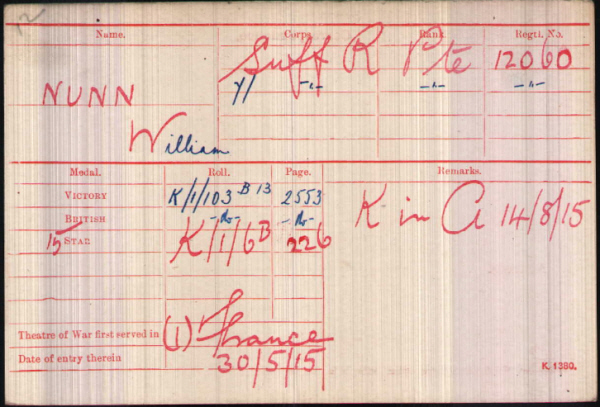 Name. Corps. Rank. Regtl. No.
NUNN Suff R Pte 12060
William 7/ -"- -"- -"-
Medal. Roll. Page. Remarks.
VICTORY K/1/103 B 13 2553 K in A 14/8/15
BRITISH -do- -do-
15 STAR K/1/6B 226
Theatre of War first served in (1) France
Date of entry therein 30/5/15
K. 1380.